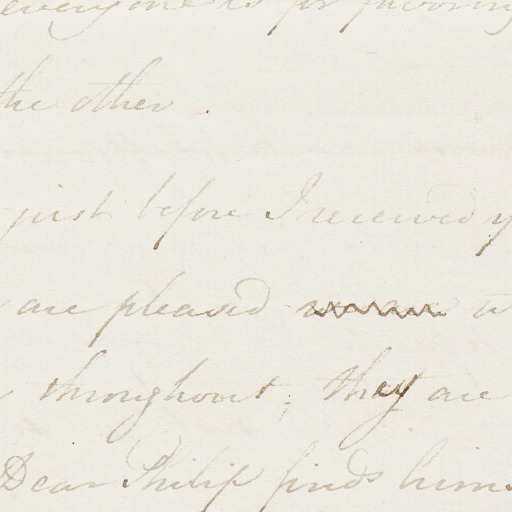 every one is for favoring
the other.
just before I received y
are pleased
throughout; they are
Dear Philip finds him